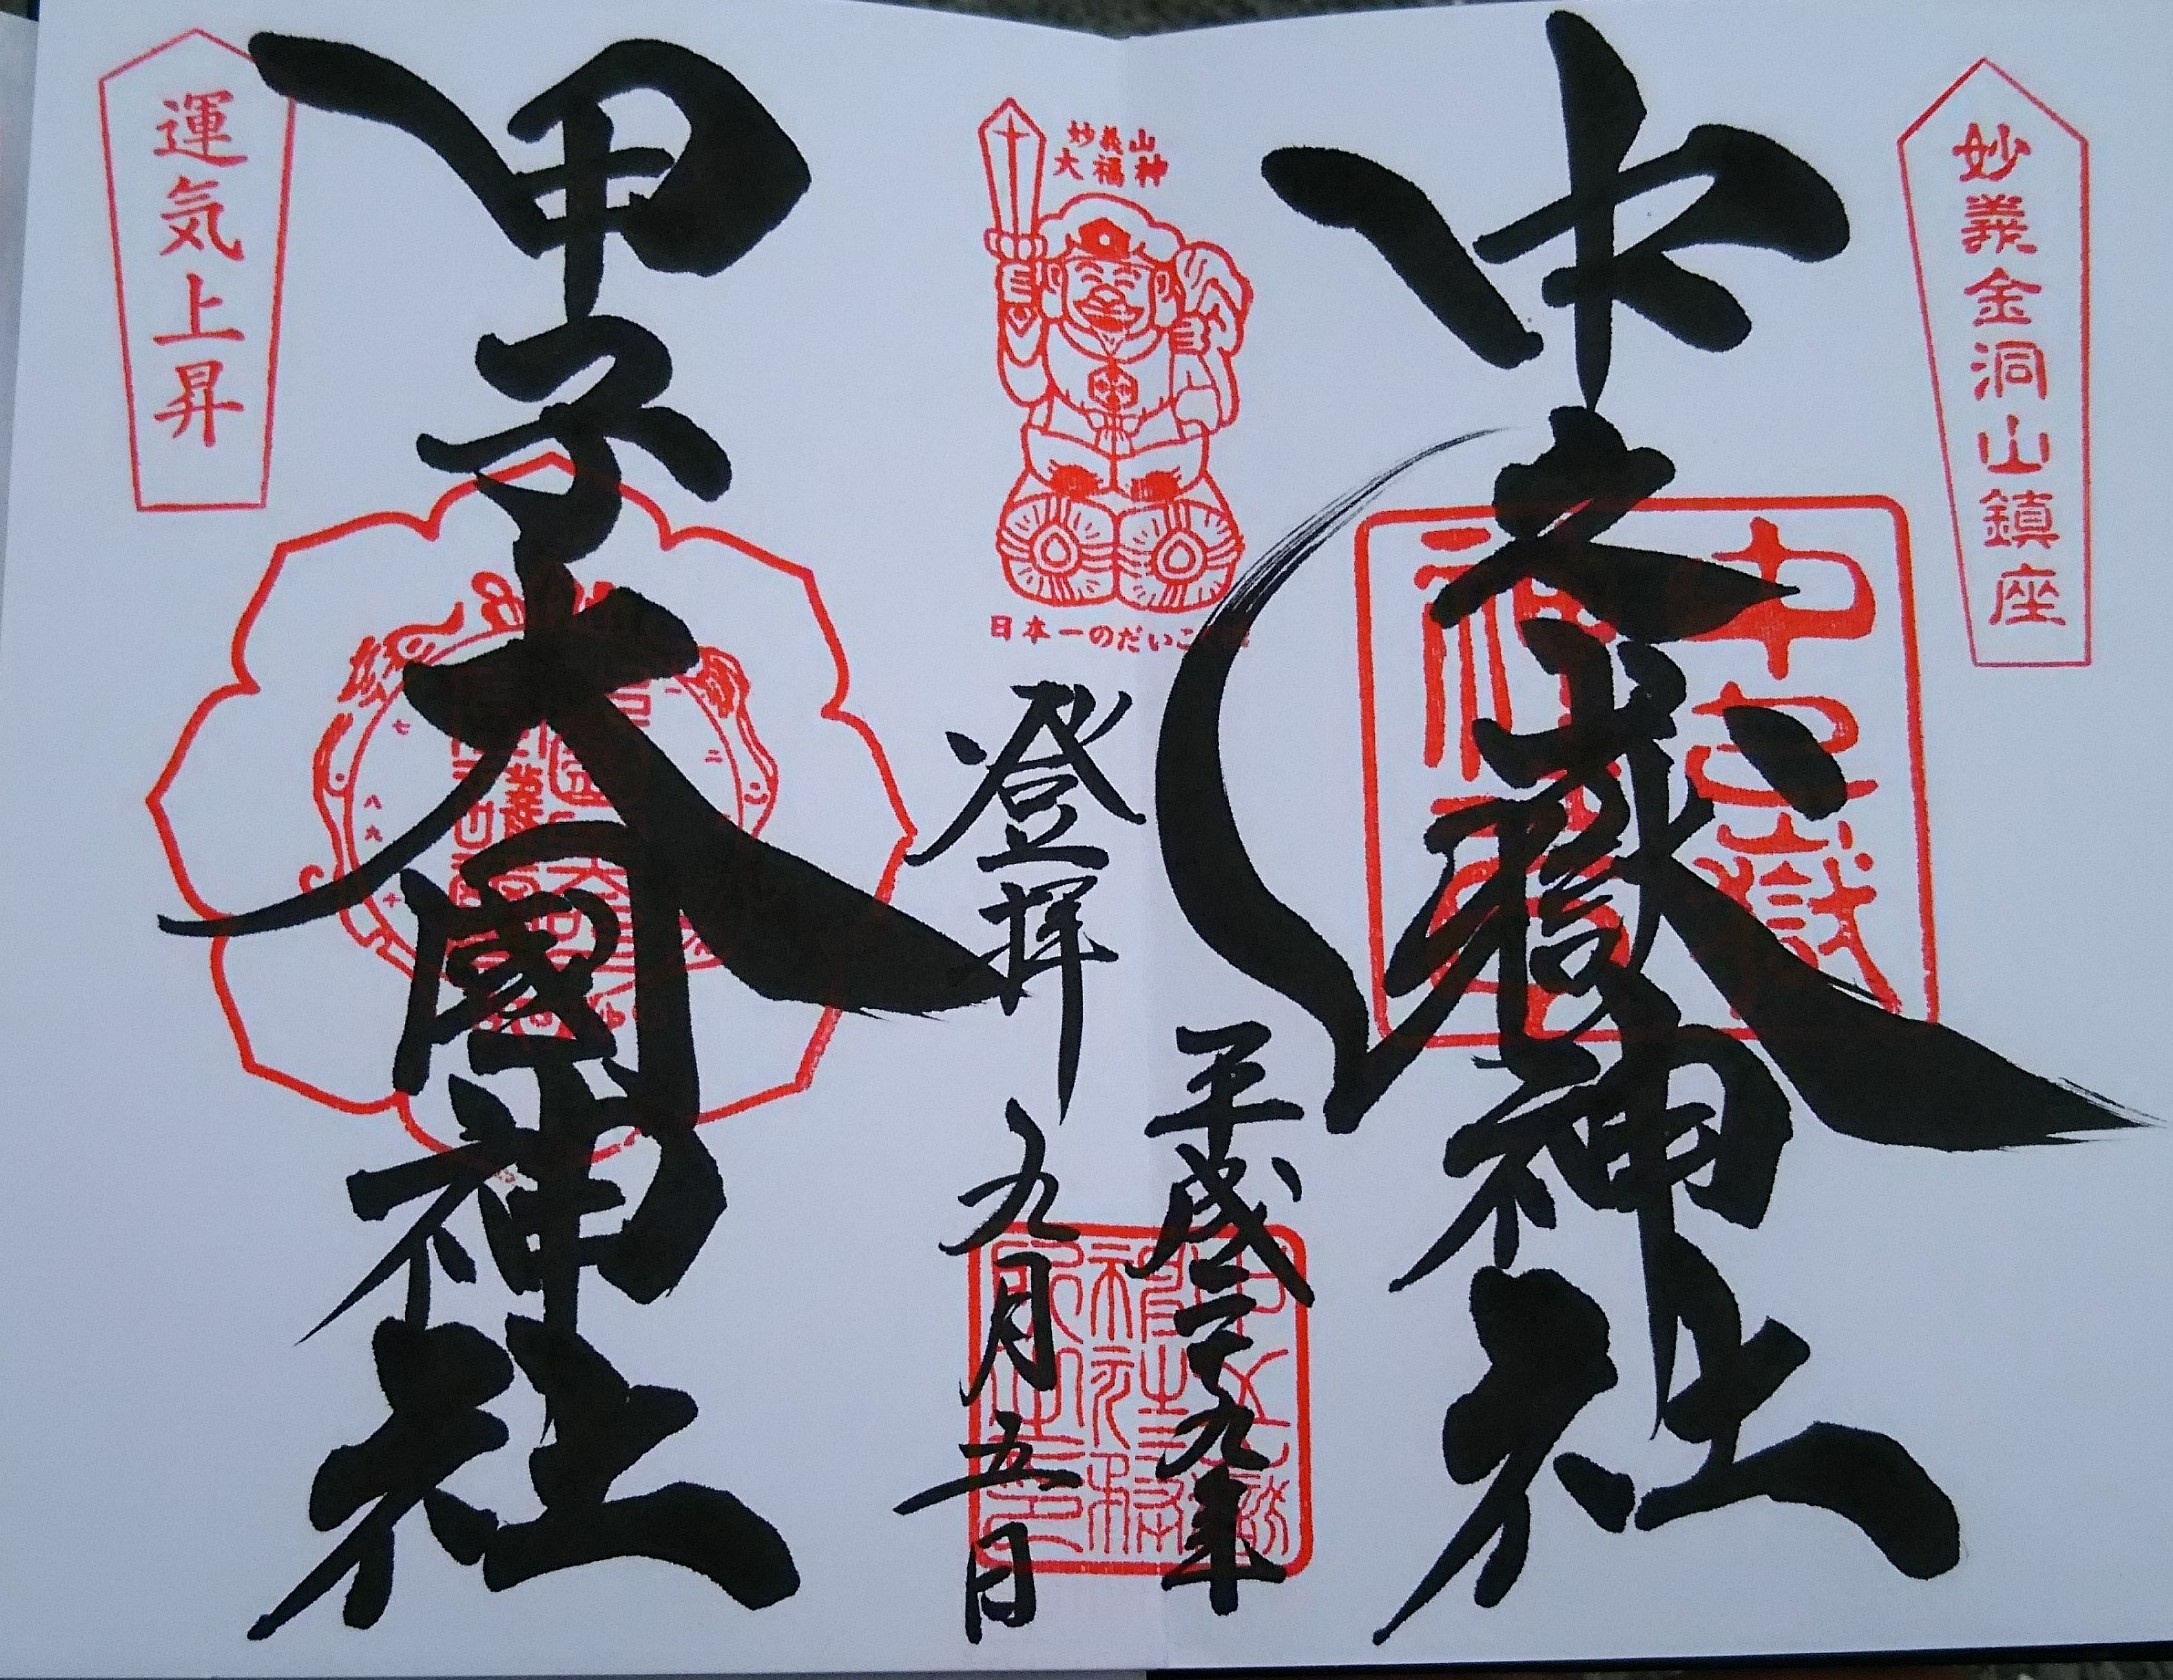 妙義金洞山鎮座
中之嶽神社
平成二十九年
九月五日
登拝
妙義山
大福神
日本一のだいこ
甲子大國神社
運気上昇